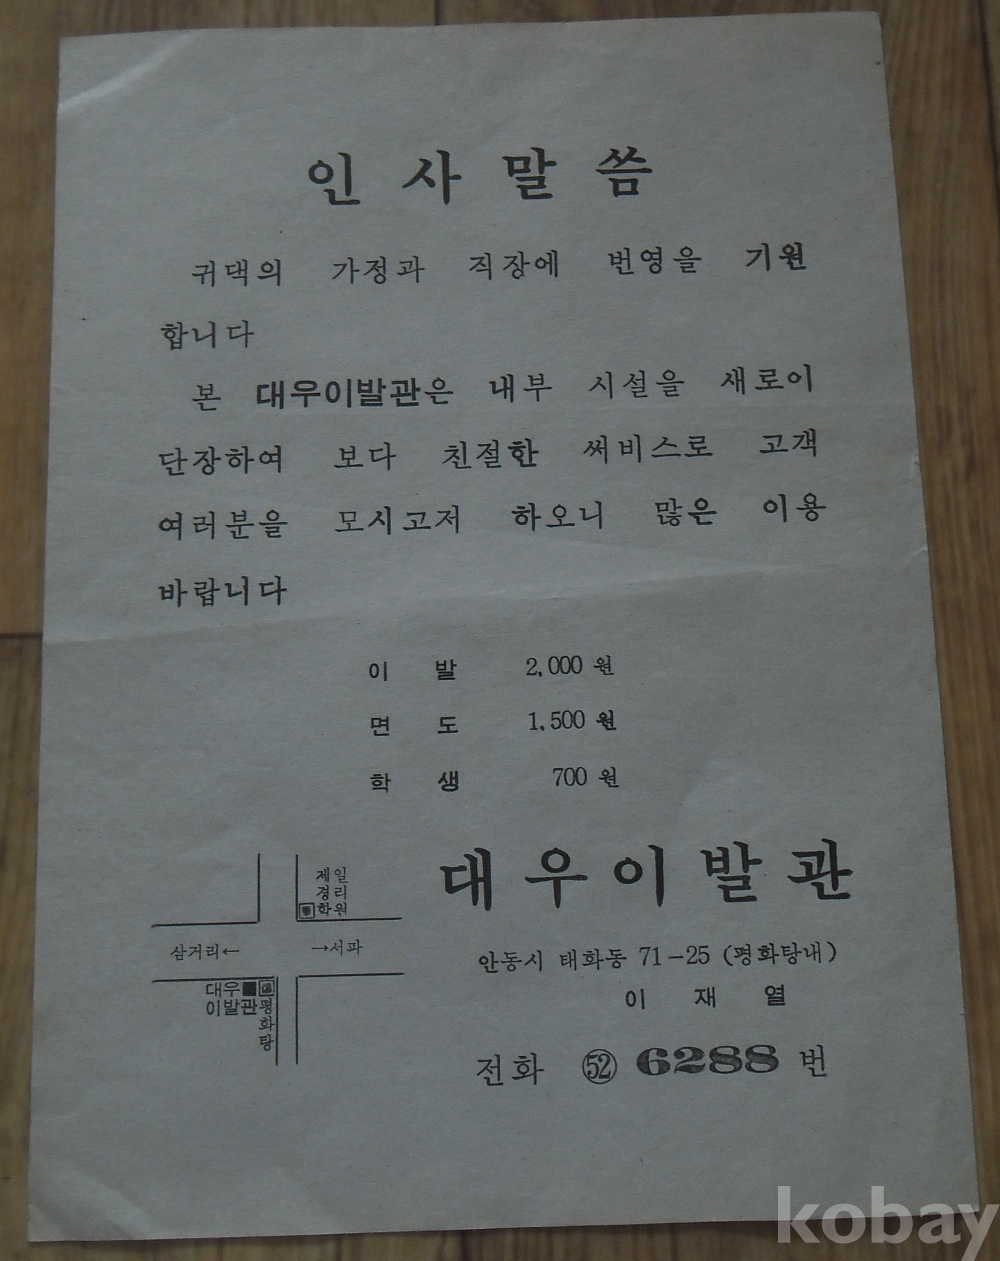 인사말씀
귀댁의 가정과 직장에 번영을 기원
합니다
본 대우이발관은 내부 시설을 새로이
단장하여 보다 친절한 써비스로 고객
여러분을 모시고저 하오니 많은 이용
바랍니다
이 발 2,000 원
면 도 1,500 원
학 생 700 원
제일
경리
학원
삼거리← →서파
대우
이발관
평화탕
대우이발관
안동시 태화동 71-25 (평화탕내)
이 재 열
전화 ㊾ 6288 번
kobay